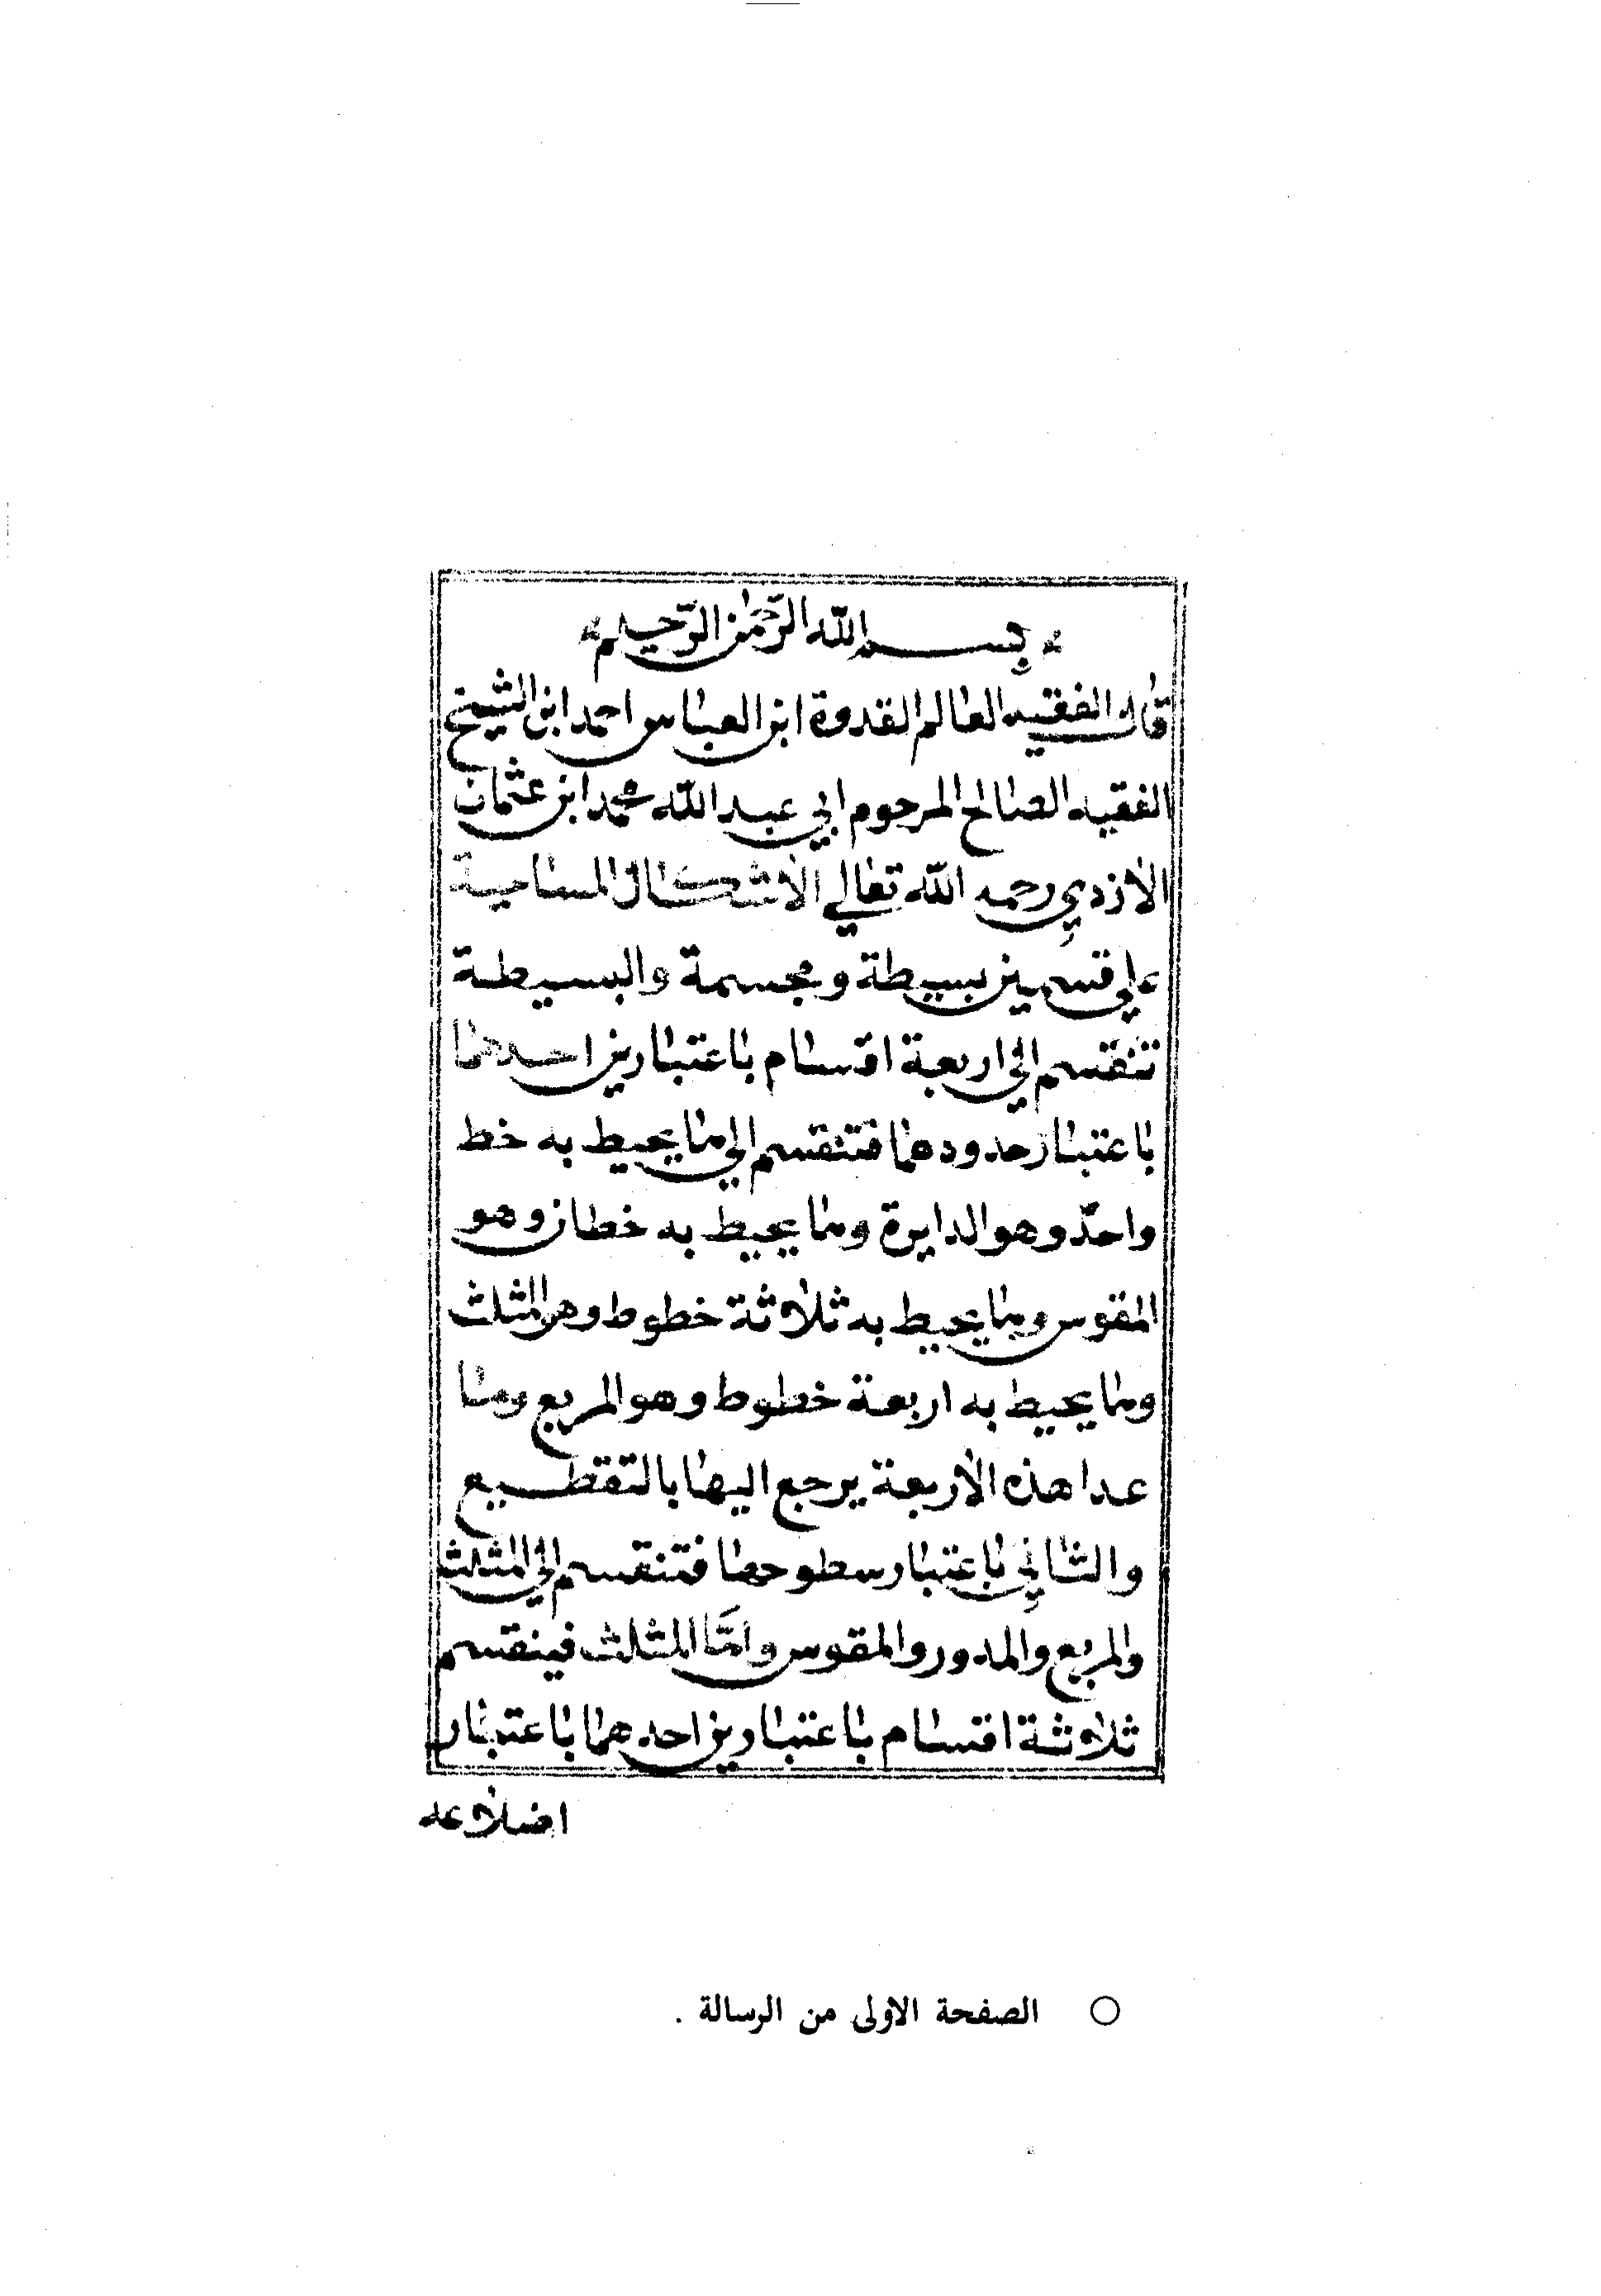 بسم الله الرّحمٰن الرّحيم
قال الفقيه العالم القدوة ابن العباس احمد ابن الشيخ
الفقيه الصالح المرحوم ابي عبد الله محمد ابن عثمان
الازدي رحمه الله تعالي الاشكال المساحية
علي قسمين بسيطة ومجسمة والبسيطة
تنقسم الي اربعة اقسام باعتبارين احدهما
باعتبار حدودها فتنقسم الي ما يحيط به خط
واحد وهو الدايرة وما يحيط به خطان وهو
المقوس وما يحيط به ثلاثة خطوط وهو المثلث
وما يحيط به اربعة خطوط وهو المربع وما
عدا هذه الاربعة يرجع اليها بالتقطيع
والثاني باعتبار سطوحها فتنقسم الي المثلث
والمربع والمدور والمقوس وامّا المثلث فينقسم
ثلاثة اقسام باعتبارين احدهما باعتبار
اضلاعه
○ الصفحة الاولى من الرسالة .